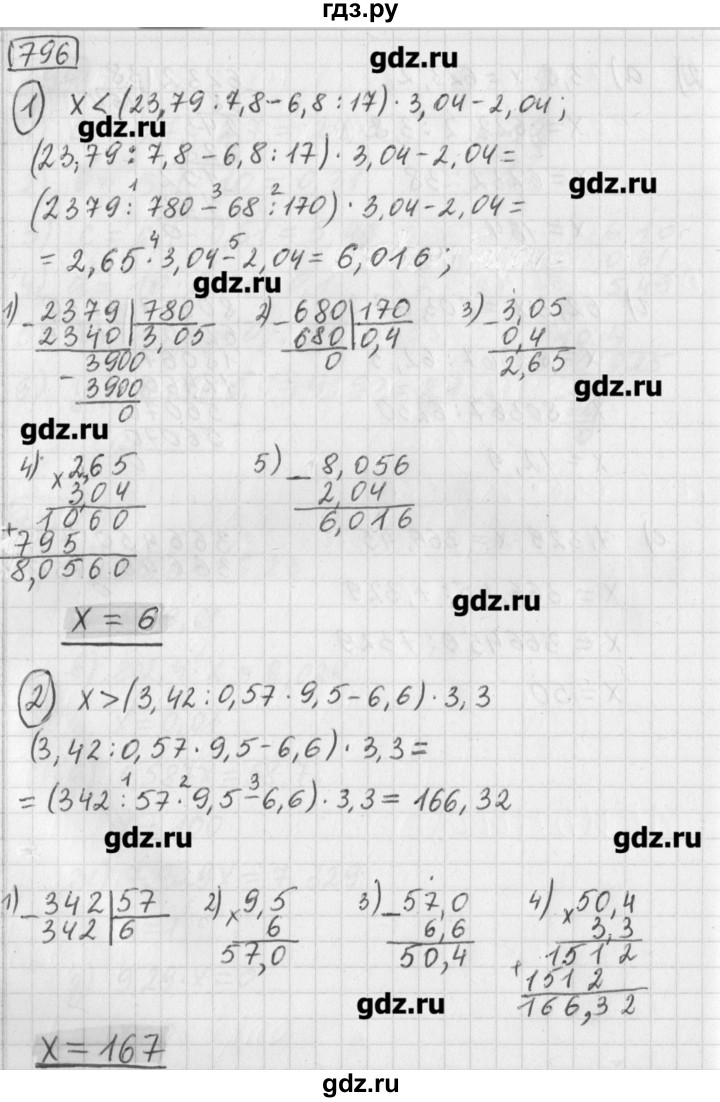 гдз.ру
796
gdz.ru
1) x < (23,79 : 7,8 – 6,8 : 17) · 3,04 – 2,04 ;
gdz.ru
(23,79 : 7,8 – 6,8 : 17) · 3,04 – 2,04 =
gdz.ru
1 3 2
(2379 : 780 – 68 : 170) · 3,04 – 2,04 =
4 5
= 2,65 · 3,04 – 2,04 = 6,016 ;
gdz.ru
1) – 2379 | 780
2340 | 3,05
3900
– 3900
0
2) – 680 | 170
680 | 0,4
0
3) – 3,05
0,4
2,65
gdz.ru
gdz.ru
4) × 2,65
3,04
1060
+ 795
8,0560
5) – 8,056
2,04
6,016
gdz.ru
x = 6
2) x > (3,42 : 0,57 · 9,5 – 6,6) · 3,3
(3,42 : 0,57 · 9,5 – 6,6) · 3,3 =
1 2 3
= (342 : 57 · 9,5 – 6,6) · 3,3 = 166,32
gdz.ru
gdz.ru
1) – 342 | 57
342 | 6
2) × 9,5
6
57,0
3) – 57,0
6,6
50,4
4) × 50,4
3,3
1512
+ 1512
166,32
gdz.ru
x = 167
gdz.ru